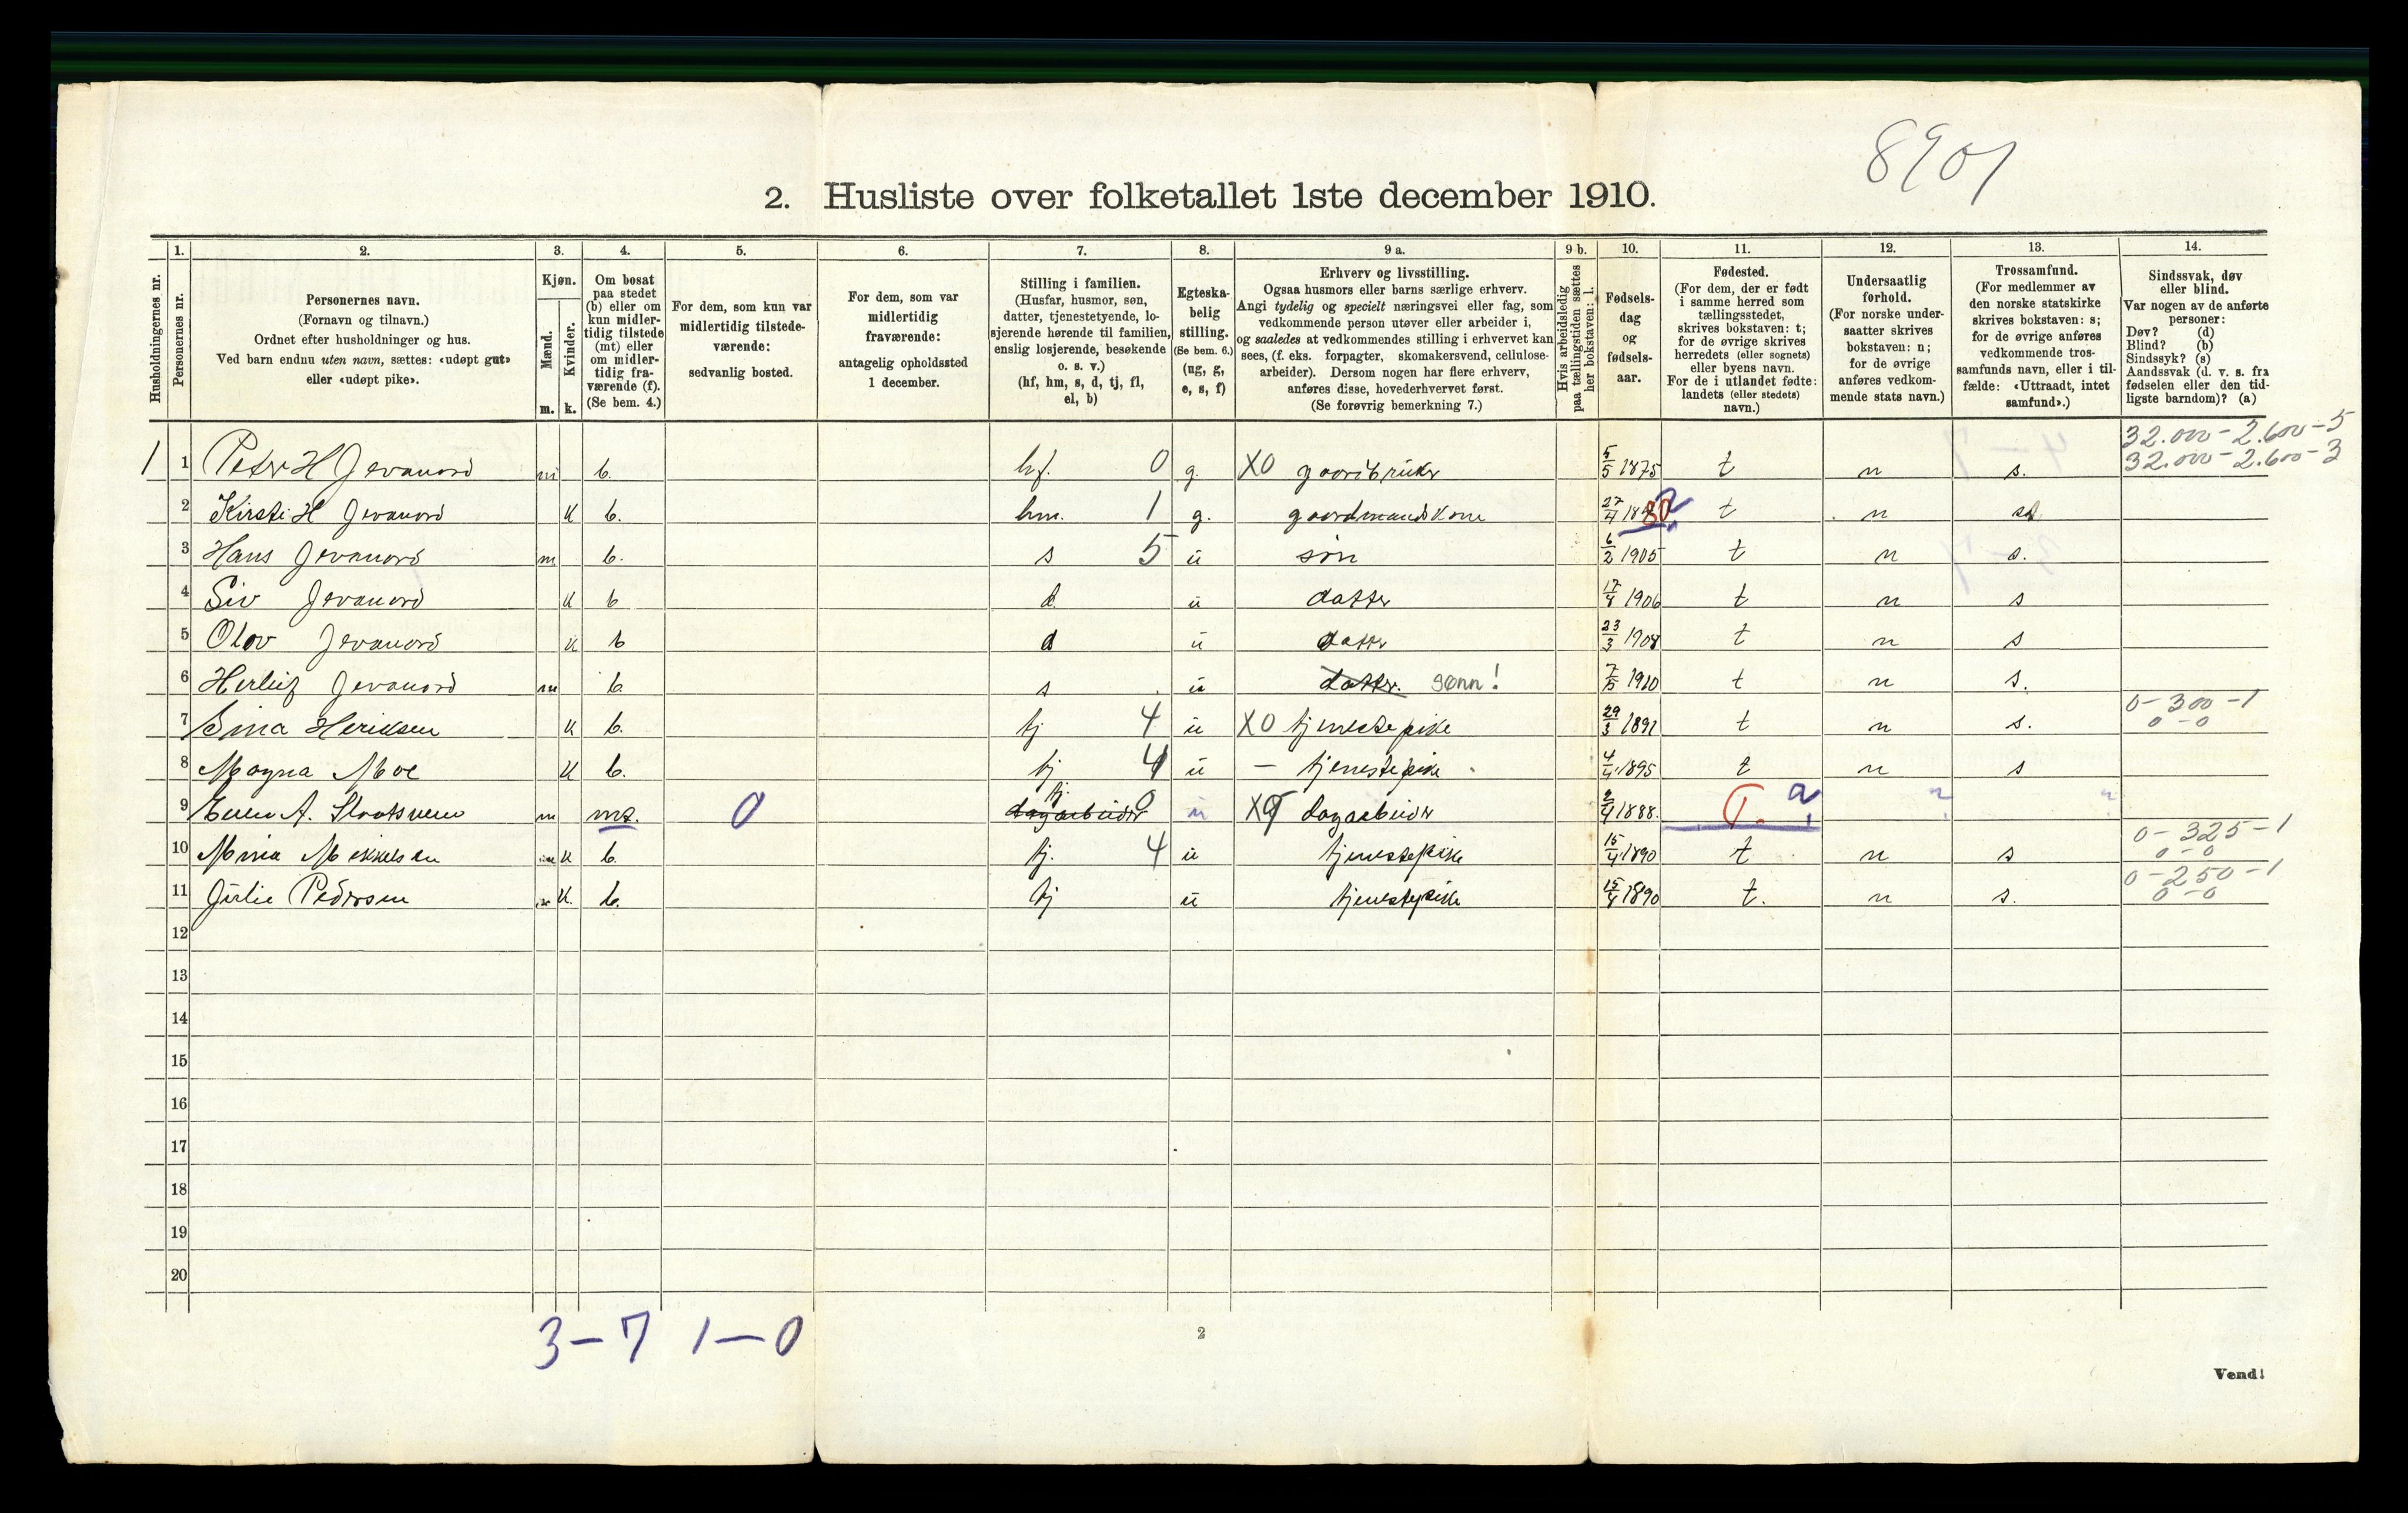 8901
2. Husliste over folketallet 1ste december 1910.
Husholdningernes nr.
1.
Personernes nr.
2.
Personernes navn.
(Fornavn og tilnavn.)
Ordnet efter husholdninger og hus.
Ved barn endnu uten navn, sættes: «udøpt gut»
eller «udøpt pike».
3.
Kjøn.
Mænd.
Kvinder.
m. k.
4.
Om bosat
paa stedet
(b) eller om
kun midler-
tidig tilstede
(mt) eller
om midler-
tidig fra-
værende (f).
(Se bem. 4.)
5.
For dem, som kun var
midlertidig tilstede-
værende:
sedvanlig bosted.
6.
For dem, som var
midlertidig
fraværende:
antagelig opholdssted
1 december.
7.
Stilling i familien.
(Husfar, husmor, søn,
datter, tjenestetyende, lo-
sjerende hørende til familien,
enslig losjerende, besøkende
o. s. v.)
(hf, hm, s, d, tj, fl,
el, b)
8.
Egteska-
belig
stilling.
(Se bem. 6.)
(ug, g,
e, s, f)
9 a.
Erhverv og livsstilling.
Ogsaa husmors eller barns særlige erhverv.
Angi tydelig og specielt næringsvei eller fag, som
vedkommende person utøver eller arbeider i,
og saaledes at vedkommendes stilling i erhvervet kan
sees, (f. eks. forpagter, skomakersvend, cellulose-
arbeider). Dersom nogen har flere erhverv,
anføres disse, hovederhvervet først.
(Se forøvrig bemerkning 7.)
9 b.
Hvis arbeidsledig
paa tællingstiden sættes
her bokstaven: l.
10.
Fødsels-
dag
og
fødsels-
aar.
11.
Fødested.
(For dem, der er født
i samme herred som
tællingsstedet,
skrives bokstaven: t;
for de øvrige skrives
herredets (eller sognets)
eller byens navn.
For de i utlandet fødte:
landets (eller stedets)
navn.)
12.
Undersaatlig
forhold.
(For norske under-
saatter skrives
bokstaven: n;
for de øvrige
anføres vedkom-
mende stats navn.)
13.
Trossamfund.
(For medlemmer av
den norske statskirke
skrives bokstaven: s;
for de øvrige anføres
vedkommende tros-
samfunds navn, eller i til-
fælde: «Uttraadt, intet
samfund».)
14.
Sindssvak, døv
eller blind.
Var nogen av de anførte
personer:
Døv? (d)
Blind? (b)
Sindssyk? (s)
Aandssvak (d. v. s. fra
fødselen eller den tid-
ligste barndom)? (a)
32.000 - 2.600 - 5
1 1 Peter H Jevanord m b. hf. 0 g. XO gaardbruker 5/5 1875 t n s. 32.000 - 2.600 - 3
2 Kirsti H Jevanord k b. hm. 1 g. gaardmandskone 27/4 1880 t n s
3 Hans Jevanord m b. s 5 u søn 6/2 1905 t n s.
4 Siv Jevanord k b d. u datter 17/8 1906 t n s
5 Olov Jevanord k b d u datter 23/3 1908 t n s
6 Herleif Jevanord m b. s u datter. sønn! 7/5 1910 t n s.
0 - 300 - 1
7 Sina Heriksen k b. tj 4 u XO tjenestepike 29/3 1891 t n s. 0 - 0
8 Magna Moe k b. tj 4 u - tjenestepike 4/4 1895 t n s
tj.
9 A. m mt. 0 dagarbeider 0 u dagarbeider 2/4 1888. T.
0 - 325 - 1
10 Mina Mikkelsen k b. tj. 4 u tjenestepike 15/4 1890 t n s 0 - 0
0 - 250 - 1
11 Julie Pedersen k. b. tj u tjenestepike 15/4 1890 t. n s. 0 - 0
12
13
14
15
16
17
18
19
20
3 - 7 1 - 0
2
Vend!